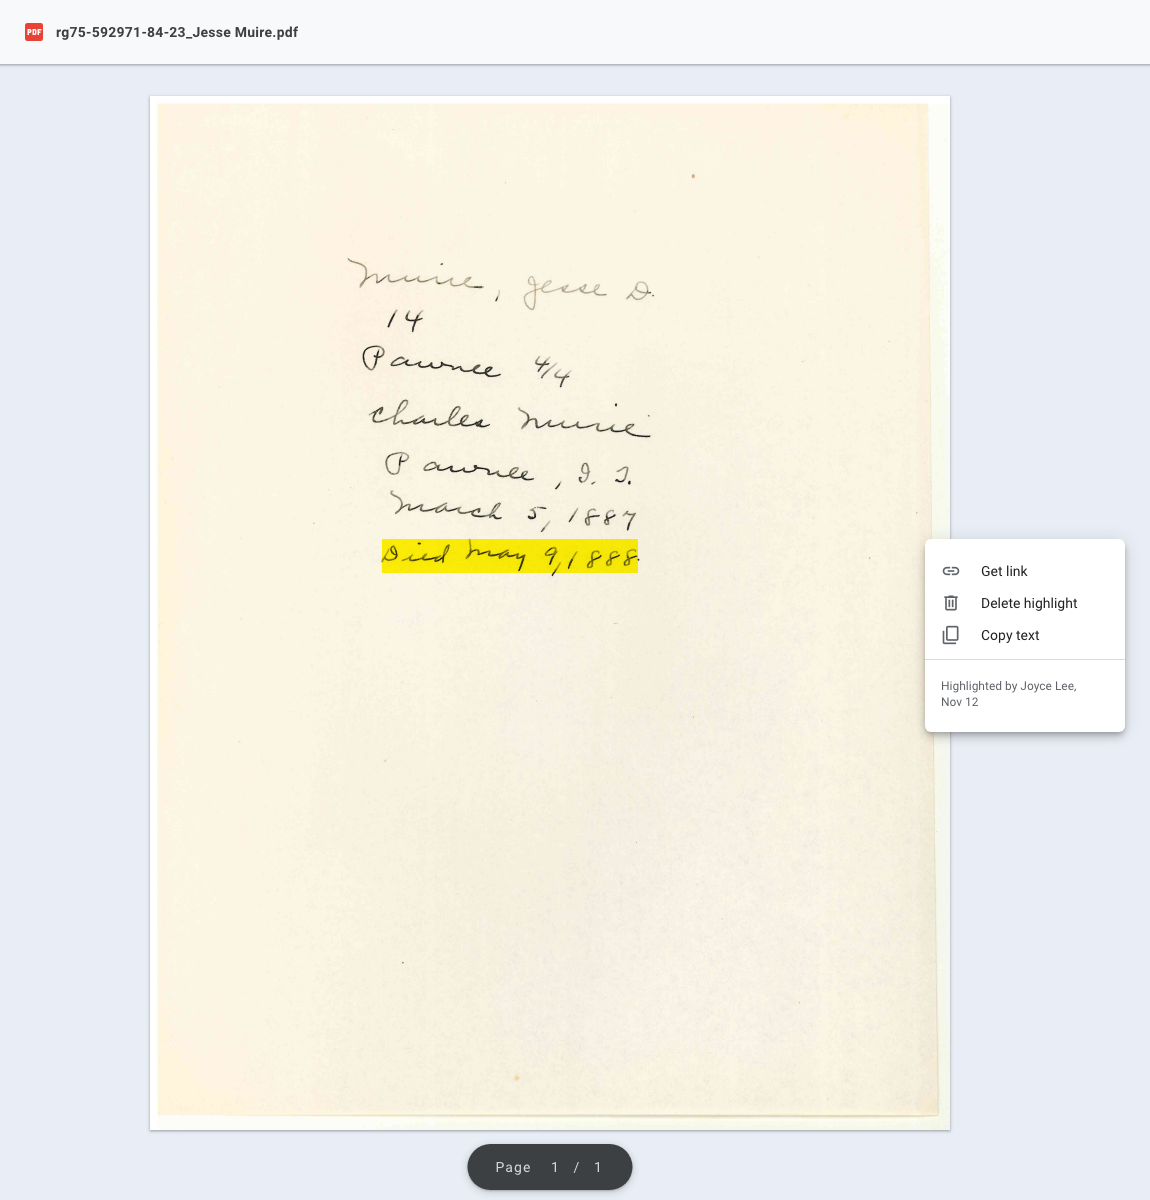 PDF rg75-592971-84-23_Jesse Muire.pdf
Murie, Jesse D.
14
Pawnee 4/4
Charles Murie
Pawnee, I. T.
March 5, 1887
Died May 9, 1888.
Get link
Delete highlight
Copy text
Highlighted by Joyce Lee,
Nov 12
Page 1 / 1